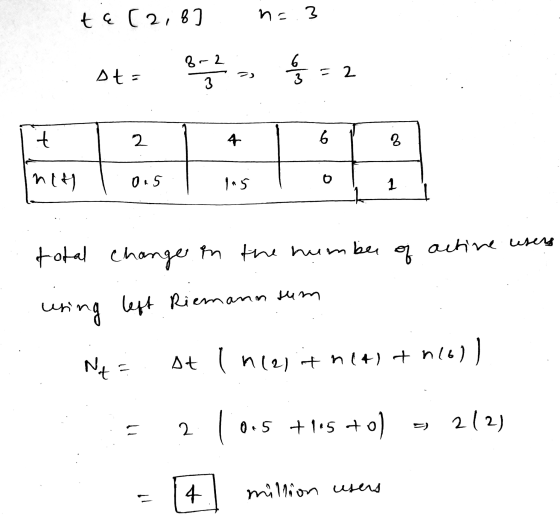 t ε [2, 8] n = 3
Δt = 8-2/3 => 6/3 = 2
t 2 4 6 8
n(t) 0.5 1.5 0 1
total change in the number of active users
using left Riemann sum
Nt = Δt ( n(2) + n(4) + n(6) )
= 2 ( 0.5 + 1.5 + 0) => 2(2)
= 4 million users